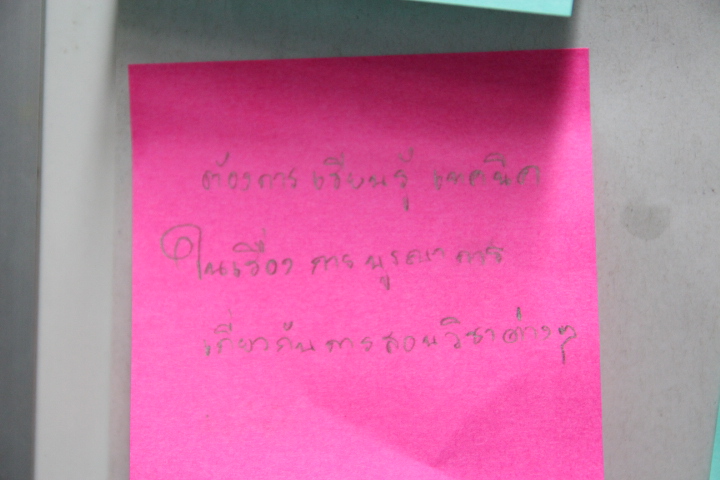 ต้องการเรียนรู้ เทคนิค
ในเรื่อง การบูรณาการ
เกี่ยวกับการสอนวิชาต่างๆ